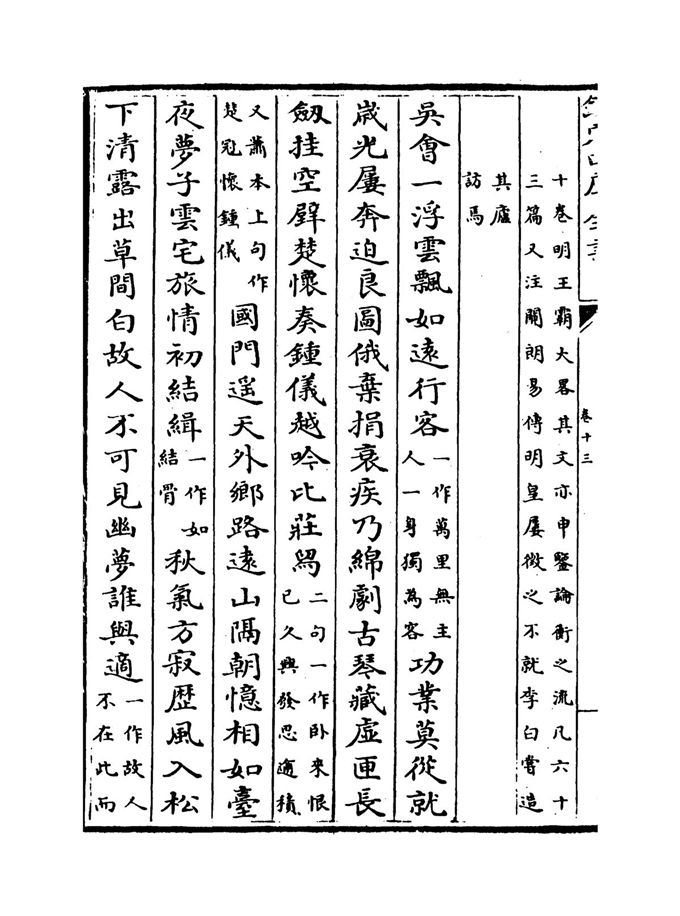 卷十三
十卷明王霸大畧其文亦申鑒論衡之流凡六十
三篇又注關朗易傳明皇屢徴之不就李白嘗造
其廬
訪焉
吳會一浮雲飄如遠行客一作萬里無主人一身獨為客功業莫從就
嵗光屢奔迫良圖俄棄捐衰疾乃綿劇古琴藏虛匣長
劔挂空壁楚懷奏鍾儀越吟比莊舄二句一作卧來恨已久興發思逾積
又蕭本上句作楚冠懷鍾儀國門遥天外鄉路逺山隔朝憶相如臺
夜夢子雲宅旅情初結緝一作如結骨秋氣方寂歴風入松
下清露出草間白故人不可見幽夢誰與適一作故人不在此而